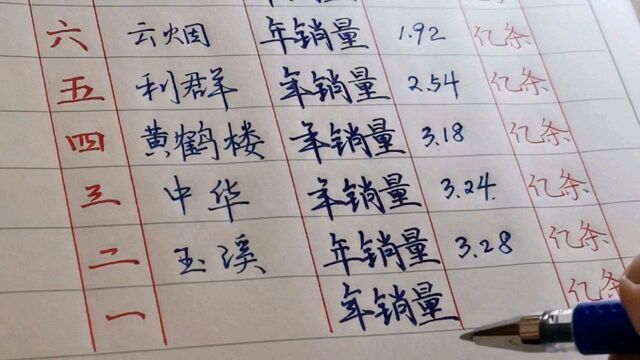 六 云烟 年销量 1.92 亿条
五 利群 年销量 2.54 亿条
四 黄鹤楼 年销量 3.18 亿条
三 中华 年销量 3.24 亿条
二 玉溪 年销量 3.28 亿条
一 年销量 亿条